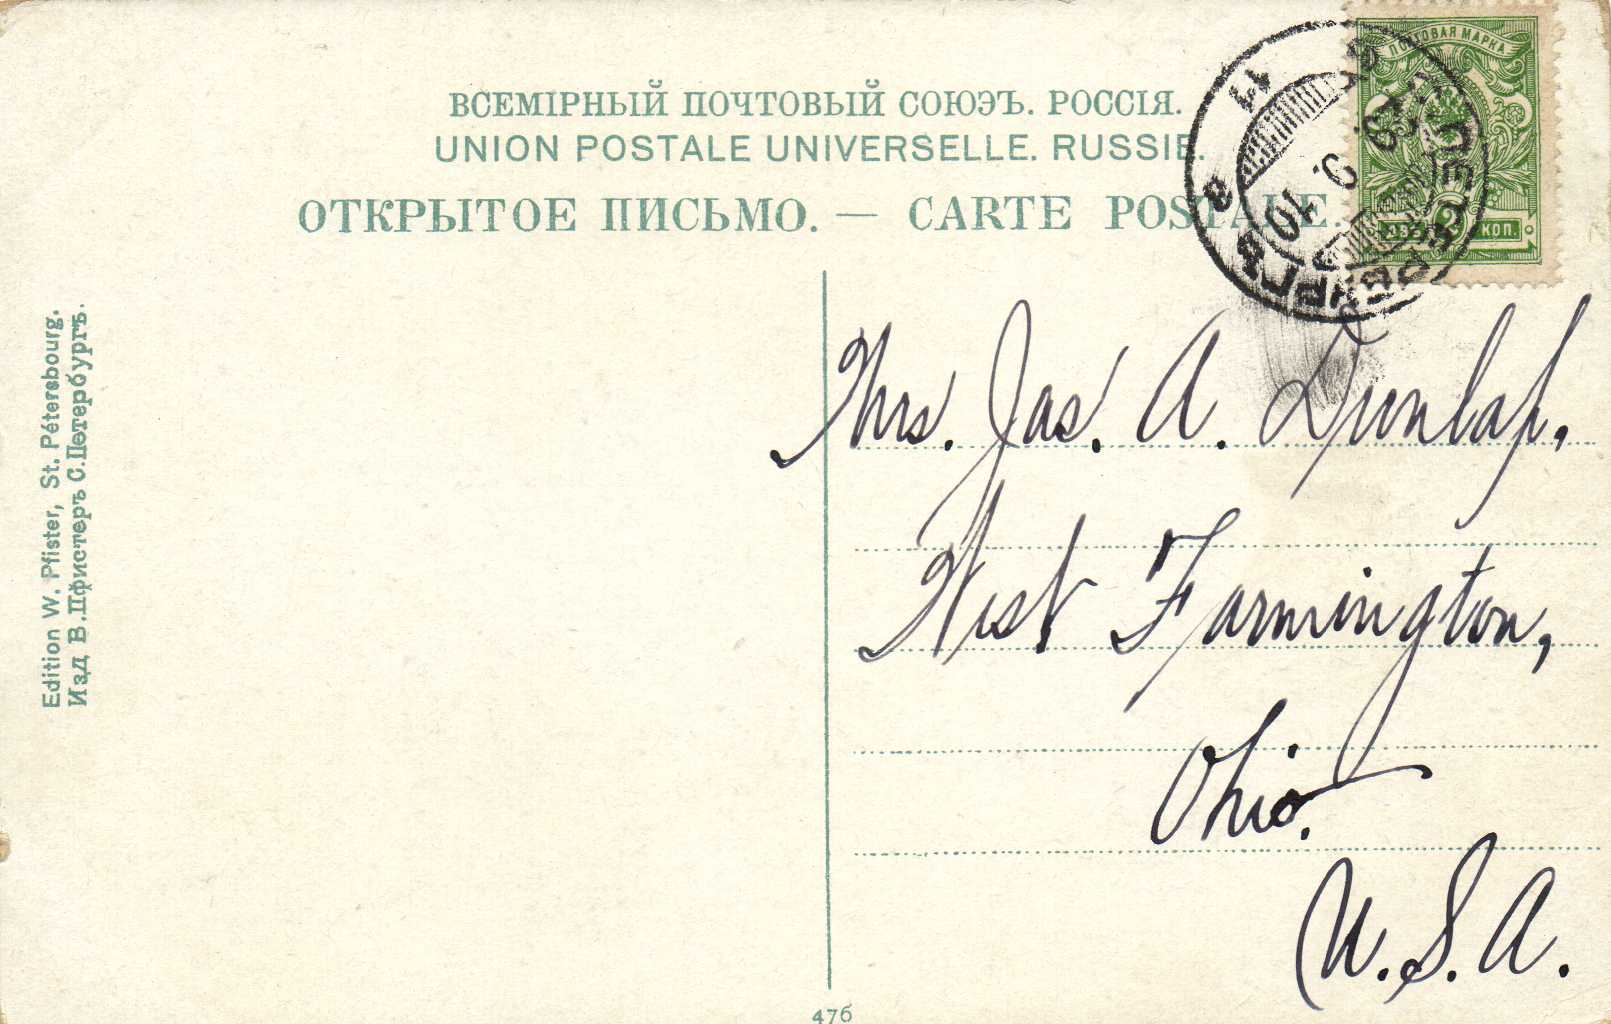 ПОЧТОВАЯ МАРКА
ВСЕМІРНЫЙ ПОЧТОВЫЙ СОЮЭЪ. РОССІЯ.
UNION POSTALE UNIVERSELLE. RUSSIE.
ОТКРЫТОЕ ПИСЬМО. — CARTE POSTALE.
ДВѢ 2 КОП.
9. 10
Edition W. Pfister, St. Pétersbourg.
Изд. В. Пфистеръ С. Петербургъ.
Mrs. Jas. A. Dunlap.
West Farmington,
Ohio.
U.S.A.
476